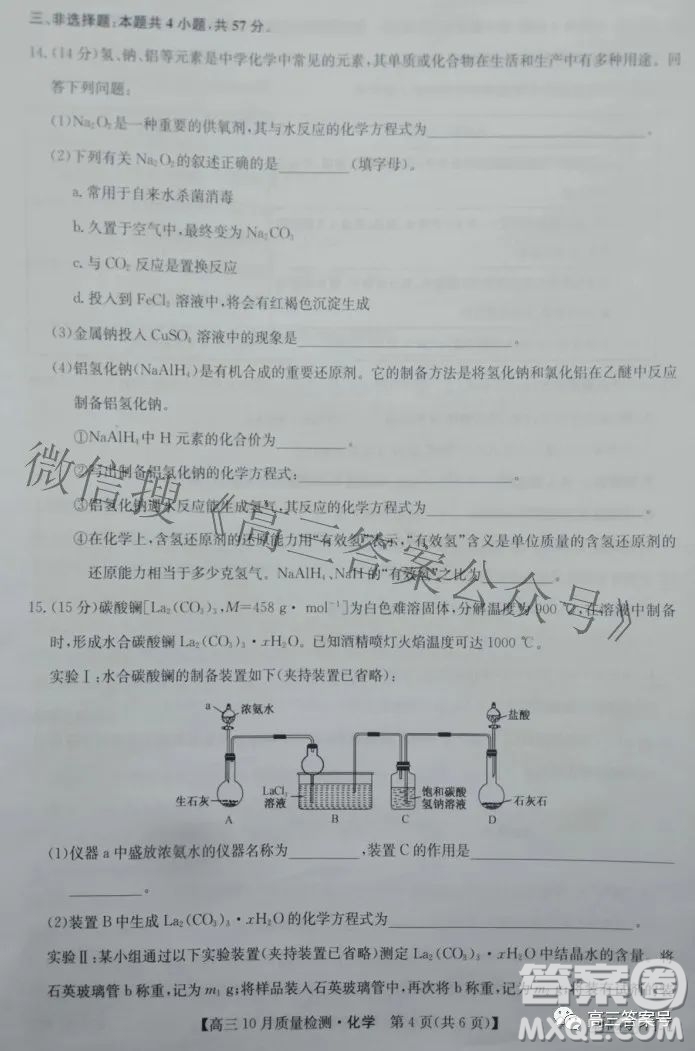 三、非选择题:本题共4小题,共57分。
14.(14分)氢、钠、铝等元素是中学化学中常见的元素,其单质或化合物在生活和生产中有多种用途。回
答下列问题:
(1)Na₂O₂是一种重要的供氧剂,其与水反应的化学方程式为____________。
(2)下列有关Na₂O₂的叙述正确的是________(填字母)。
a.常用于自来水杀菌消毒
b.久置于空气中,最终变为Na₂CO₃
c.与CO₂反应是置换反应
d.投入到FeCl₂溶液中,将会有红褐色沉淀生成
(3)金属钠投入CuSO₄溶液中的现象是____________。
(4)铝氢化钠(NaAlH₄)是有机合成的重要还原剂。它的制备方法是将氢化钠和氯化铝在乙醚中反应
制备铝氢化钠。
①NaAlH₄中H元素的化合价为________。
②写出制备铝氢化钠的化学方程式:____________。
③铝氢化钠遇水反应能生成氢气,其反应的化学方程式为____________。
④在化学上,含氢还原剂的还原能力用“有效氢”表示,“有效氢”含义是单位质量的含氢还原剂的
还原能力相当于多少克氢气。NaAlH₄、NaH的“有效氢”之比为________。
15.(15分)碳酸镧[La₂(CO₃)₃,M=458 g·mol⁻¹]为白色难溶固体,分解温度为900 ℃,在溶液中制备
时,形成水合碳酸镧La₂(CO₃)₃·xH₂O。已知酒精喷灯火焰温度可达1000 ℃。
实验Ⅰ:水合碳酸镧的制备装置如下(夹持装置已省略):
a
浓氨水
盐酸
生石灰
LaCl₃
溶液
饱和碳酸
氢钠溶液
石灰石
A
B
C
D
(1)仪器a中盛放浓氨水的仪器名称为________,装置C的作用是____________
________。
(2)装置B中生成La₂(CO₃)₃·xH₂O的化学方程式为____________。
实验Ⅱ:某小组通过以下实验装置(夹持装置已省略)测定La₂(CO₃)₃·xH₂O中结晶水的含量。将
石英玻璃管b称重,记为m₁ g;将样品装入石英玻璃管中,再次将
【高三10月质量检测·化学 第4页(共6页)】
微信搜《高三答案公众号》
答案圈
MXQE.COM
高三答案号